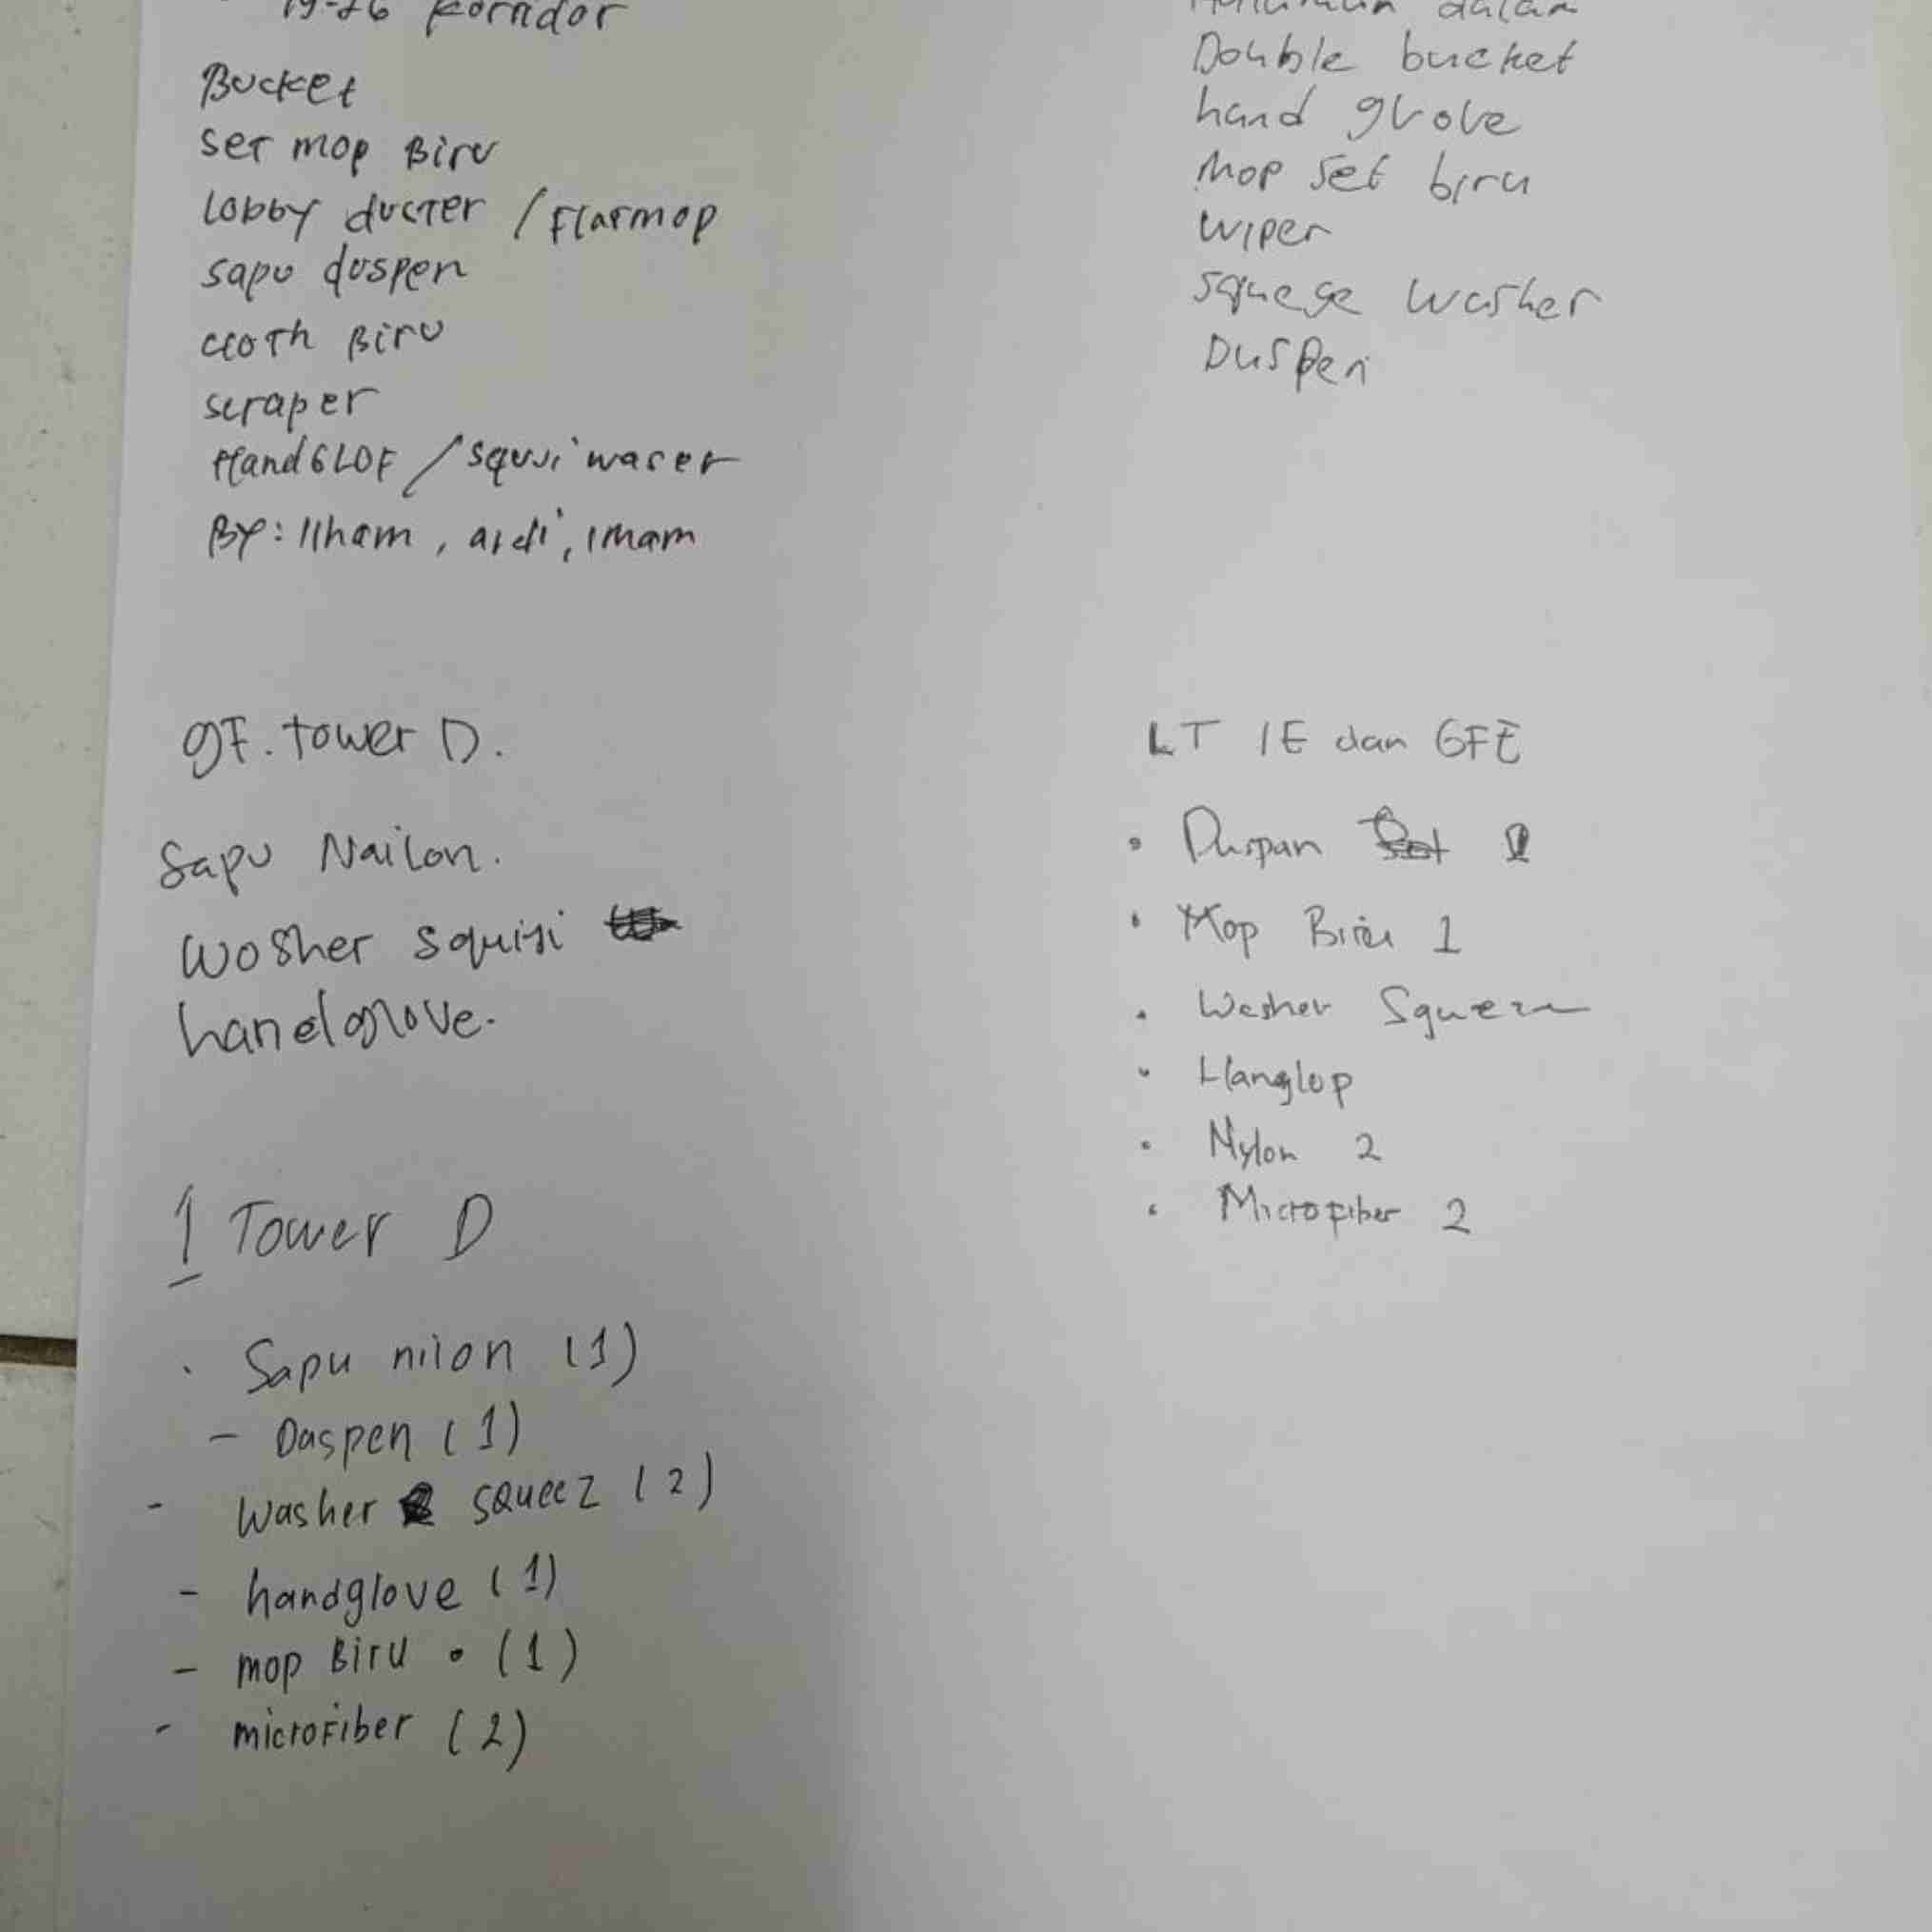 19-26 Korridor
Bucket
ser mop Biru
lobby ducter / Flatmop
sapu duspen
ccoth Biru
scraper
HandGLOF / squsi waser
By: Ilham, ardi, imam
gF. tower D.
Sapu Nailon.
wosher squisi
handglove.
1 Tower D
· Sapu nilon (1)
- Daspen (1)
- Washer squeez (2)
- handglove (1)
- mop Biru • (1)
- microfiber (2)
dalam
Double bucket
hand glove
Mop set biru
Wiper
Squege Washer
Duspen
LT 1E dan GFE
• Duspan 1
• Mop Biru 1
• Washer
• Hanglop
• Nylon 2
• Microfiber 2